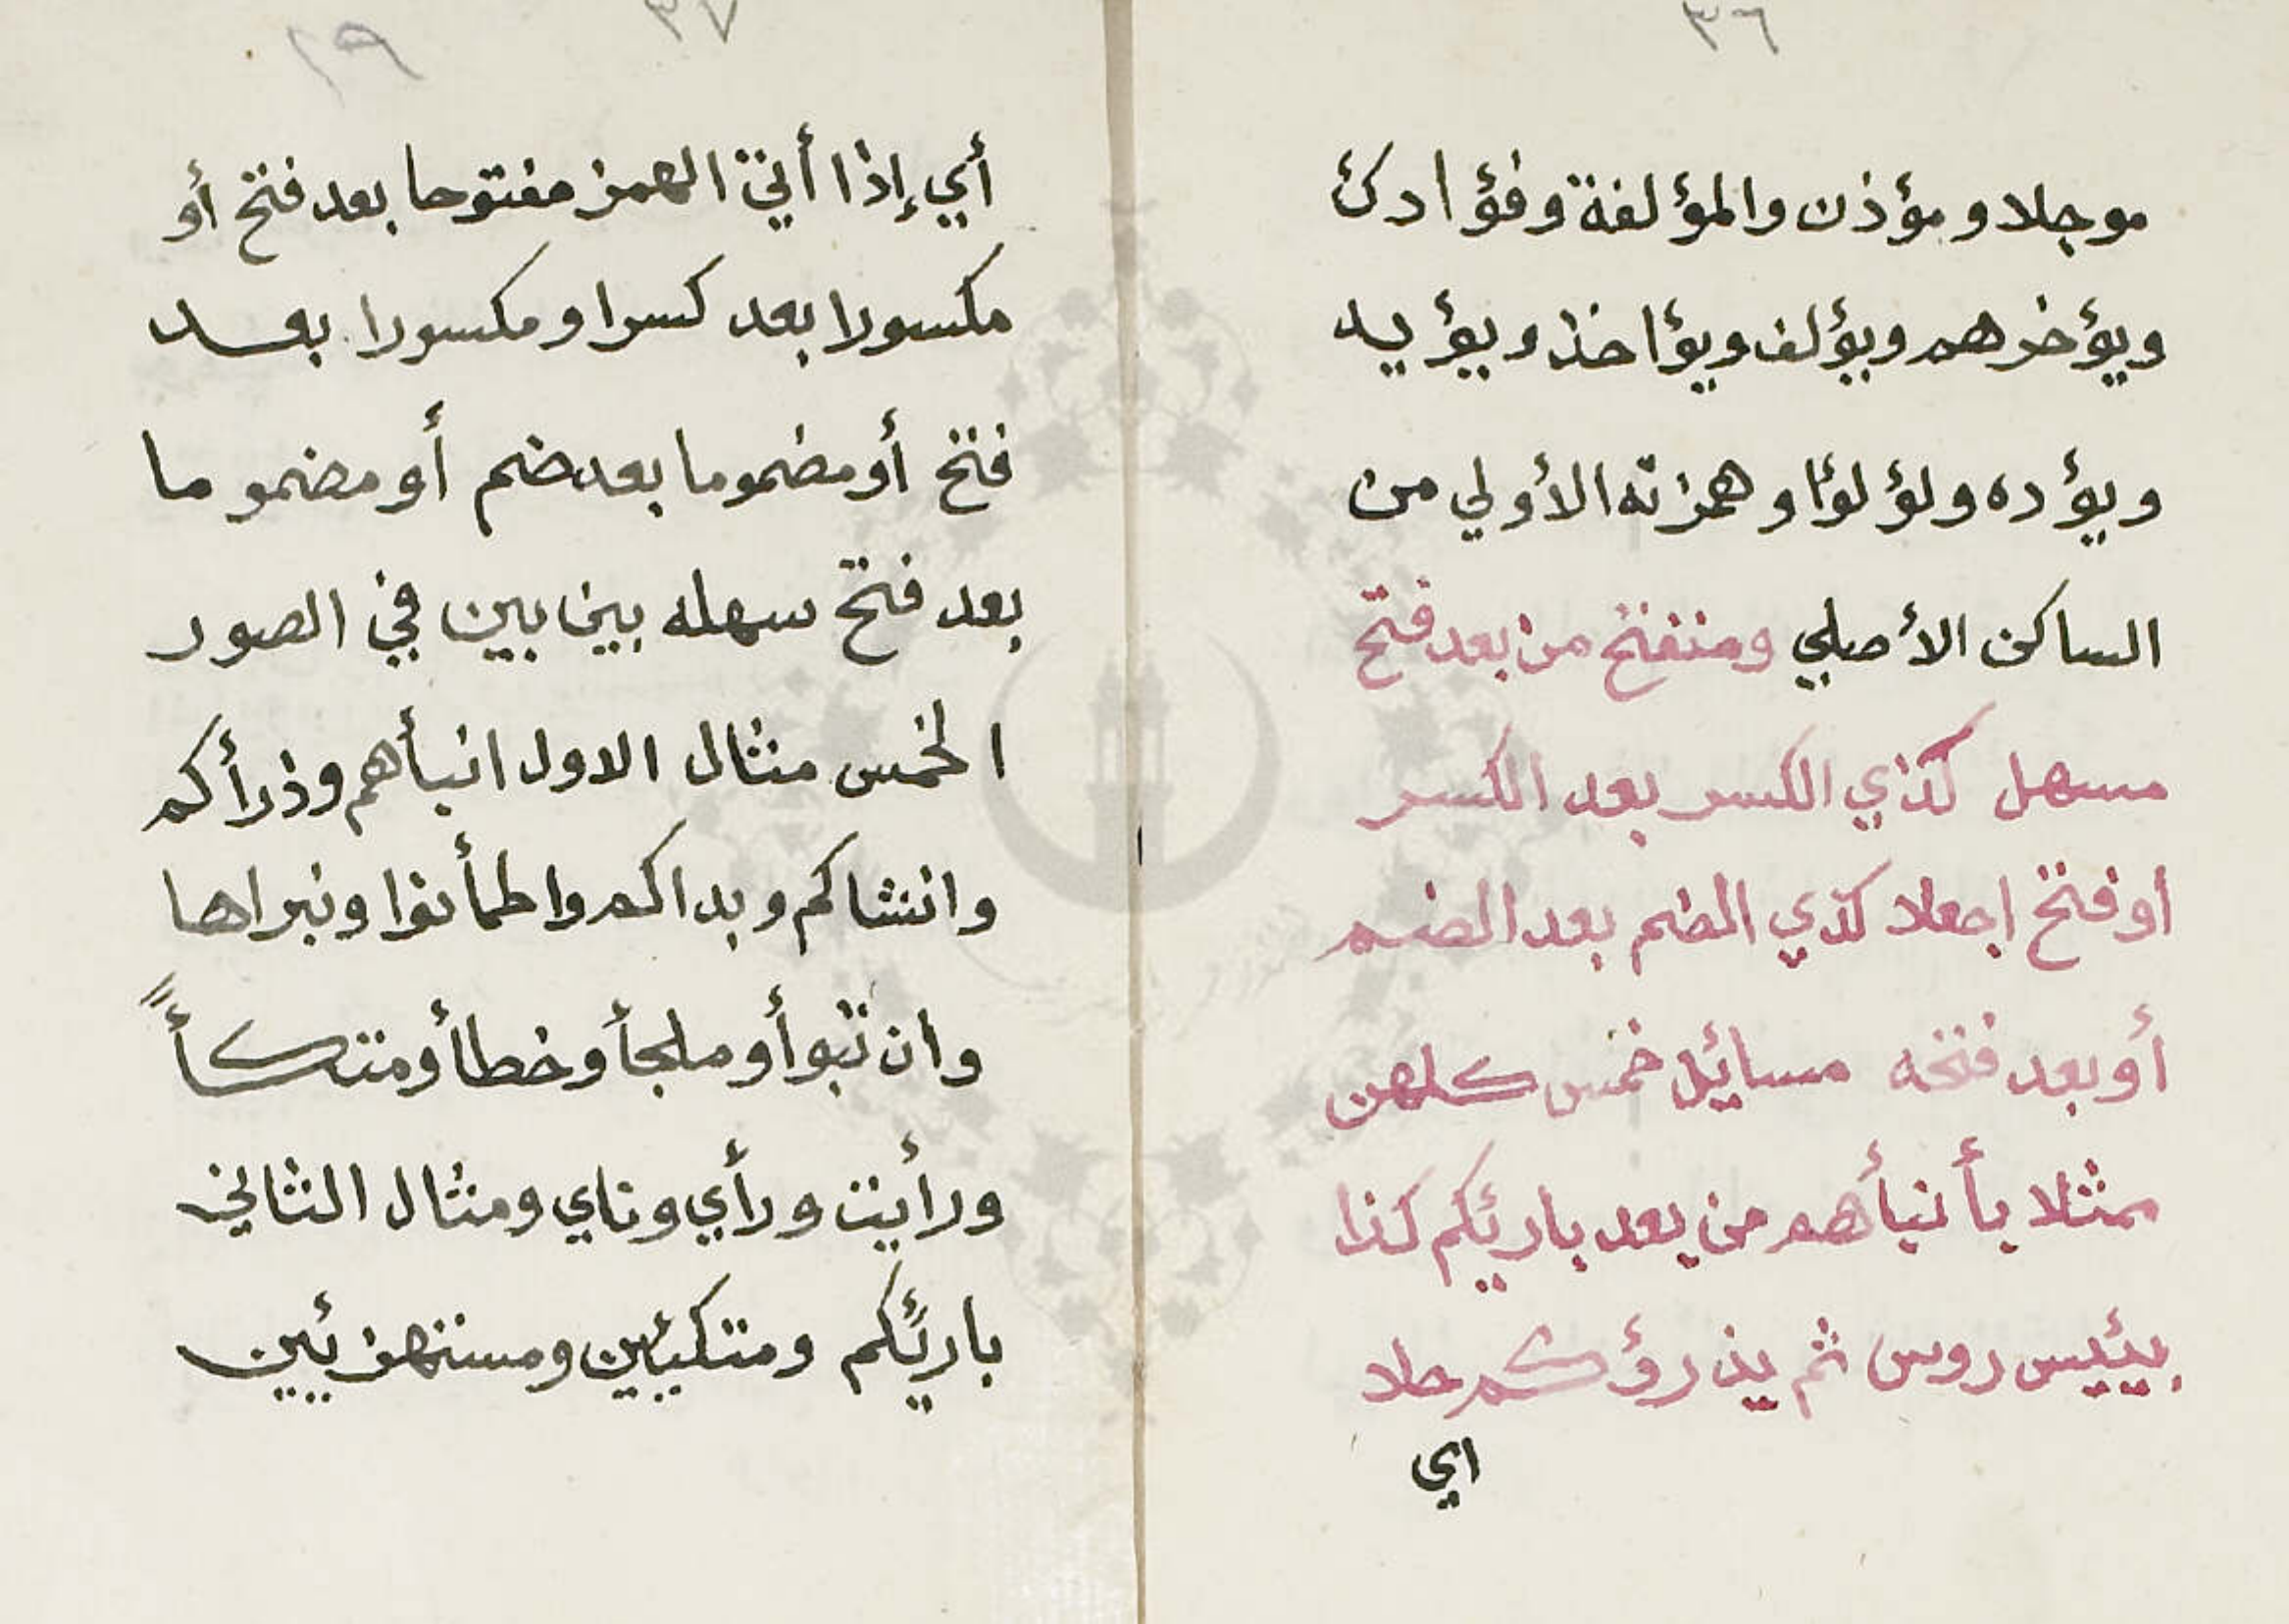 ٣٦
موجلا ومؤذن والمؤلفة وفؤادك
ويؤخرهم ويؤلف ويؤاخذ ويؤيد
ويؤده ولؤلؤا وهمزته الأولي من
الساكن الأصلي ومنفتح من بعد فتح
مسهل كذي الكسر بعد الكسر
أو فتح اجعلا كذي الضم بعد الضم
أو بعد فتحه مسائل خمس كلهن
ممثلا بأنبأهم من بعد بارئكم كذا
بيئيس روس ثم يذرؤكم حلا
اي
٣٧
٢٩
أي إذا أتي الهمز مفتوحا بعد فتح أو
مكسورا بعد كسرا ومكسورا بعد
فتح أو مضموما بعد ضم أو مضموما
بعد فتح سهله بين بين في الصور
الخمس مثال الاول انبأهم وذرأكم
وانشاكم وبداكم واطمأنوا ونبراها
وان تبوأ وملجأ وخطأ ومتكأ
ورأيت ورأي وناي ومثال الثاني
بارئكم ومتكيئين ومستهزئين